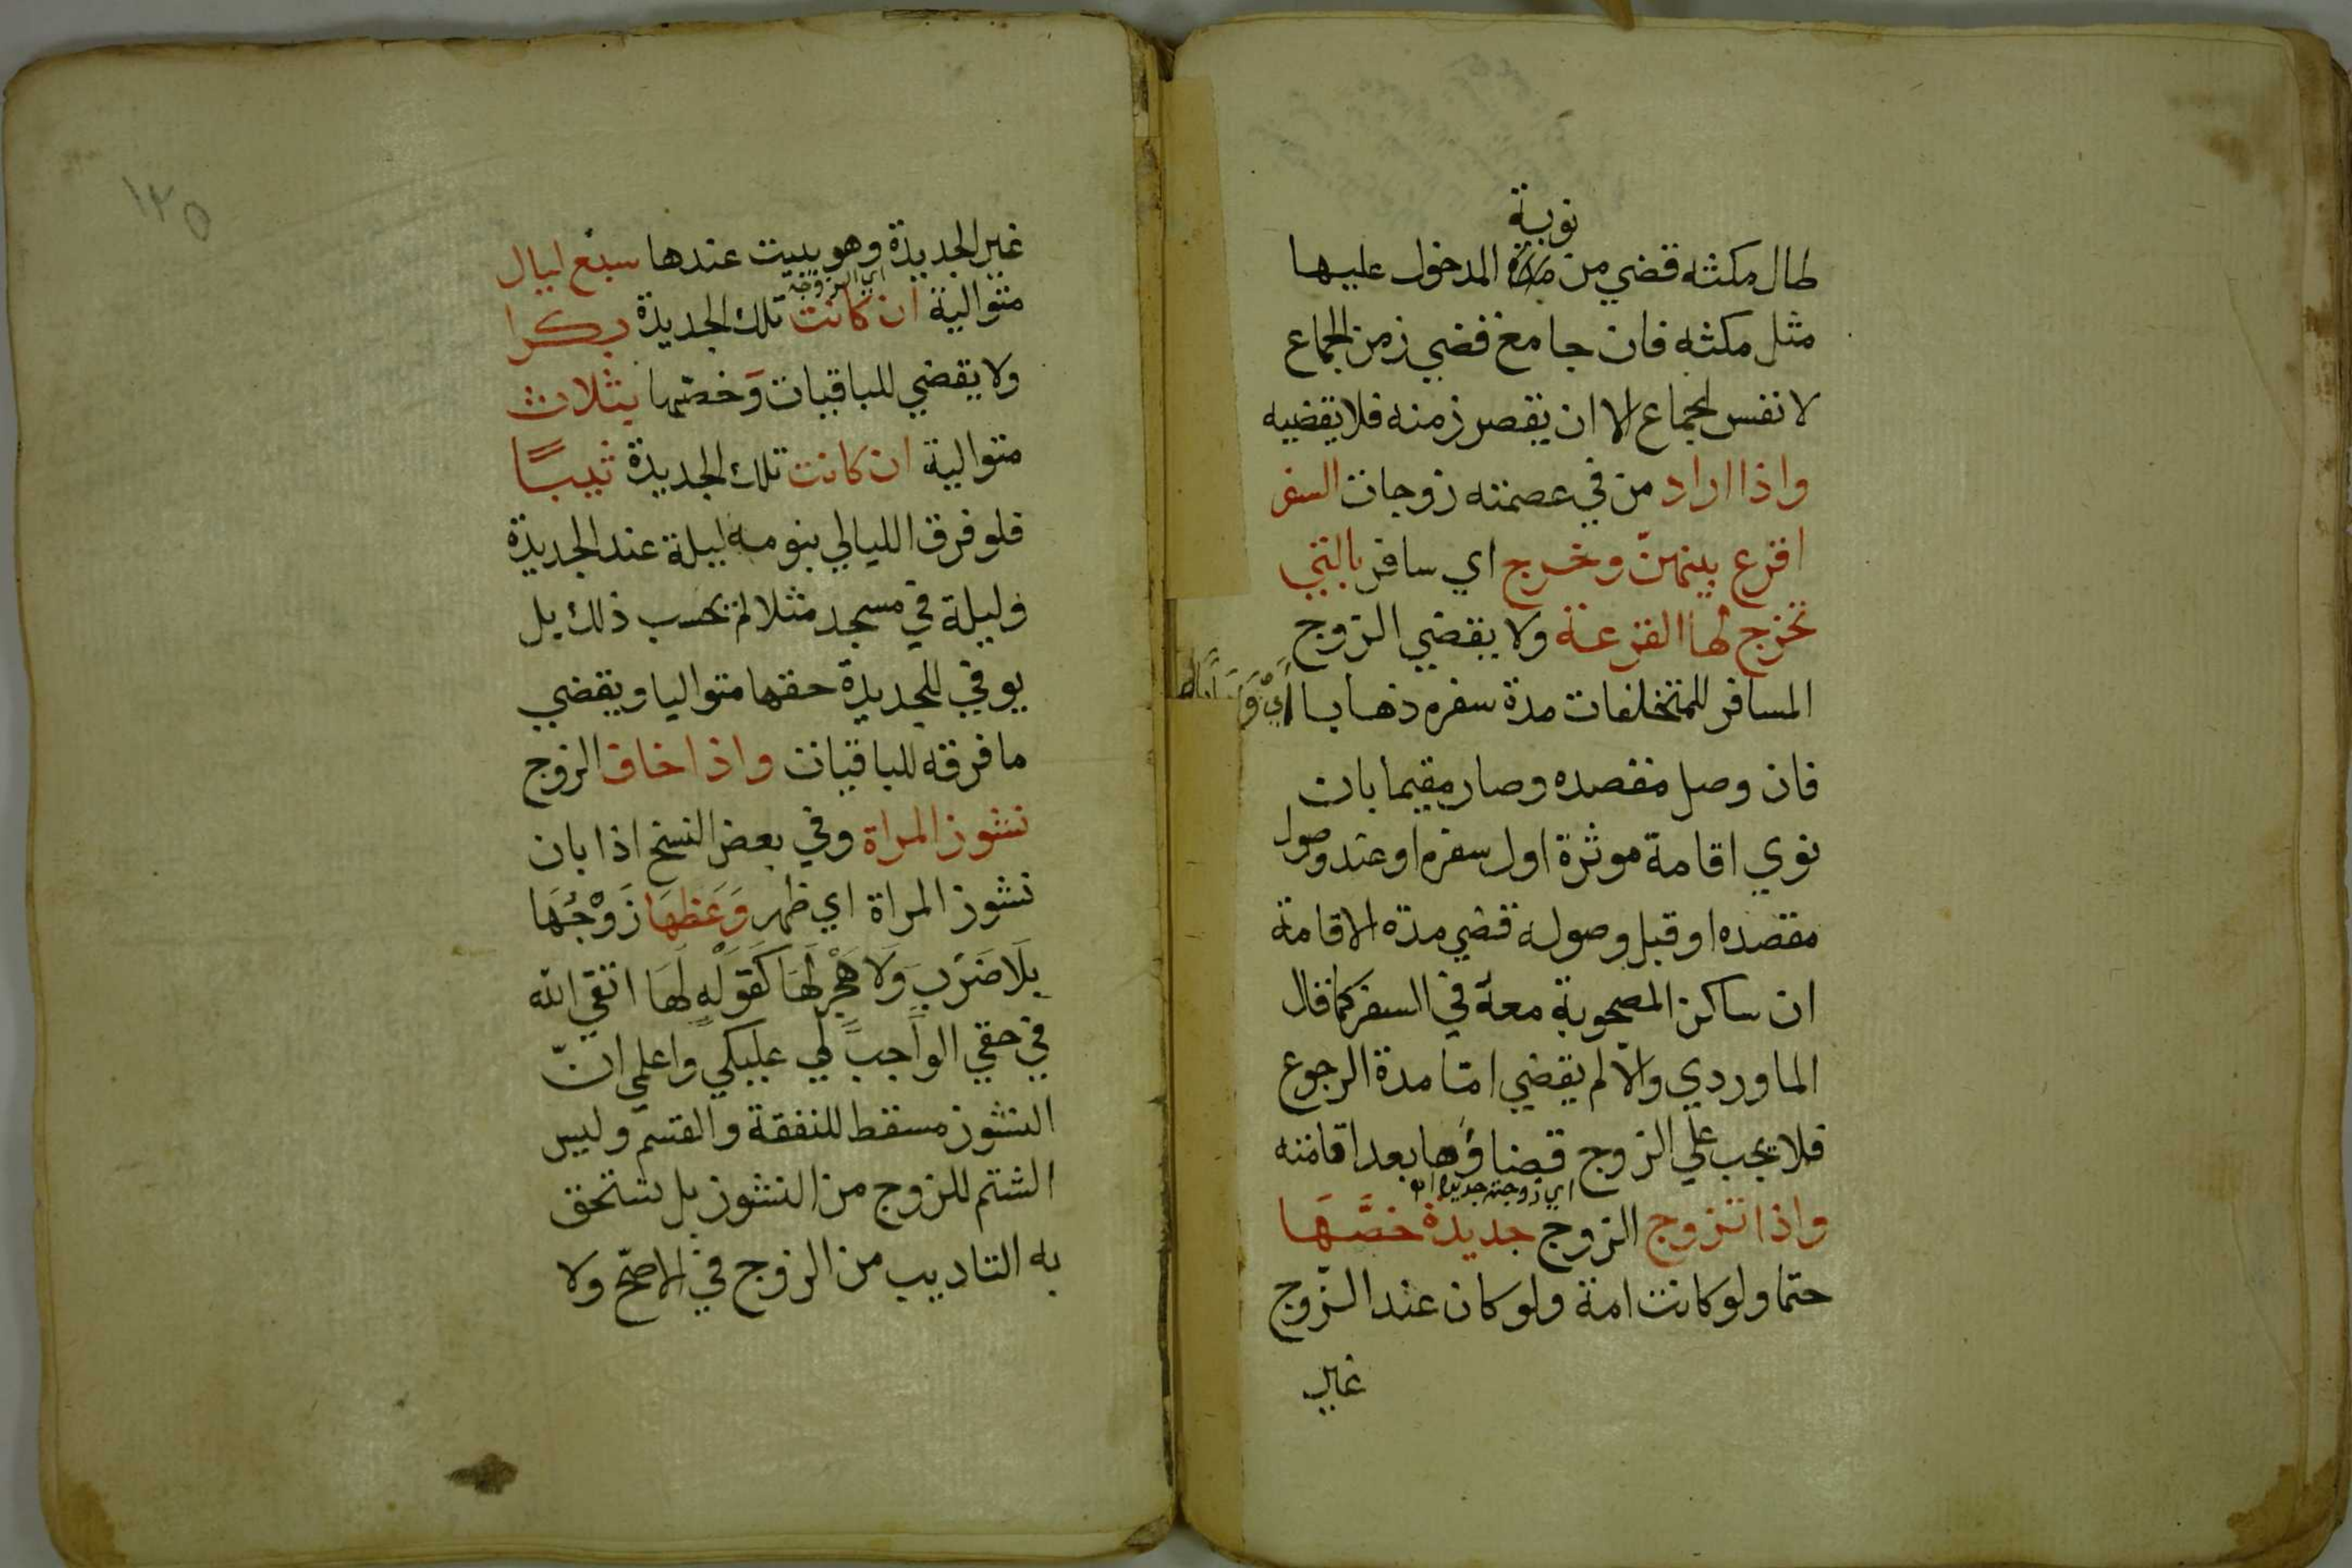 نوبة
طال مكثه قضي من المدخول عليها
مثل مكثه فان جامع قضي زمن الجماع
لا نفس الجماع الا ان يقصر زمنه فلا يقضيه
واذا اراد من في عصمته زوجات السفر
اقرع بينهنّ وخرج اي سافر بالتي
تخرج لها القرعة ولا يقضي الزوج
المسافر للمتخلفات مدة سفره ذهابا
فان وصل مقصده وصار مقيما بان
نوي اقامة موثرة اول سفره او عند وصول
مقصده او قبل وصوله قضي مدة الاقامة
ان ساكن المصحوبة معه في السفر كما قال
الماوردي والا لم يقضي امّا مدة الرجوع
فلا يجب علي الزوج قضاؤها بعد اقامته
اي زوجة جديدة
واذا تزوج الزوج جديدة خصَّهَا
حتما ولو كانت امة ولو كان عند الزوج
غير
١٢٥
غير الجديدة وهو يبيت عندها سبع ليال
اي الزوجة
متوالية ان كانت تلك الجديدة بكرا
ولا يقضي للباقيات وَخصّها بثلاث
متوالية ان كانت تلك الجديدة ثيبًا
فلو فرق الليالي بنومه ليلة عند الجديدة
وليلة في مسجد مثلا لم يحسب ذلك بل
يوفي للجديدة حقها متواليا ويقضي
ما فرقه للباقيات واذا خاف الزوج
نشوز المراة وفي بعض النسخ اذا بان
نشوز المراة اي ظهر وَعَظهَا زَوْجُهَا
بِلَا ضَرْبٍ وَلَا هَجْرٍ لَهَا كَقَوْلِهِ لَهَا اتقي الله
في حقي الواجب لي عليكي واعلمي انّ
النشوز مسقط للنفقة والقسم وليس
الشتم للزوج من النشوز بل تستحق
به التاديب من الزوج في الاصحّ ولا